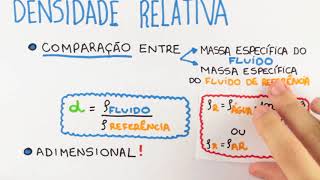 DENSIDADE RELATIVA
• COMPARAÇÃO ENTRE
MASSA ESPECÍFICA DO
FLUÍDO
MASSA ESPECÍFICA
DO FLUIDO DE REFERÊNCIA
d = ρFLUIDO
ρREFERÊNCIA
ρR = ρÁGUA =
OU
ρR = ρAR
• ADIMENSIONAL!